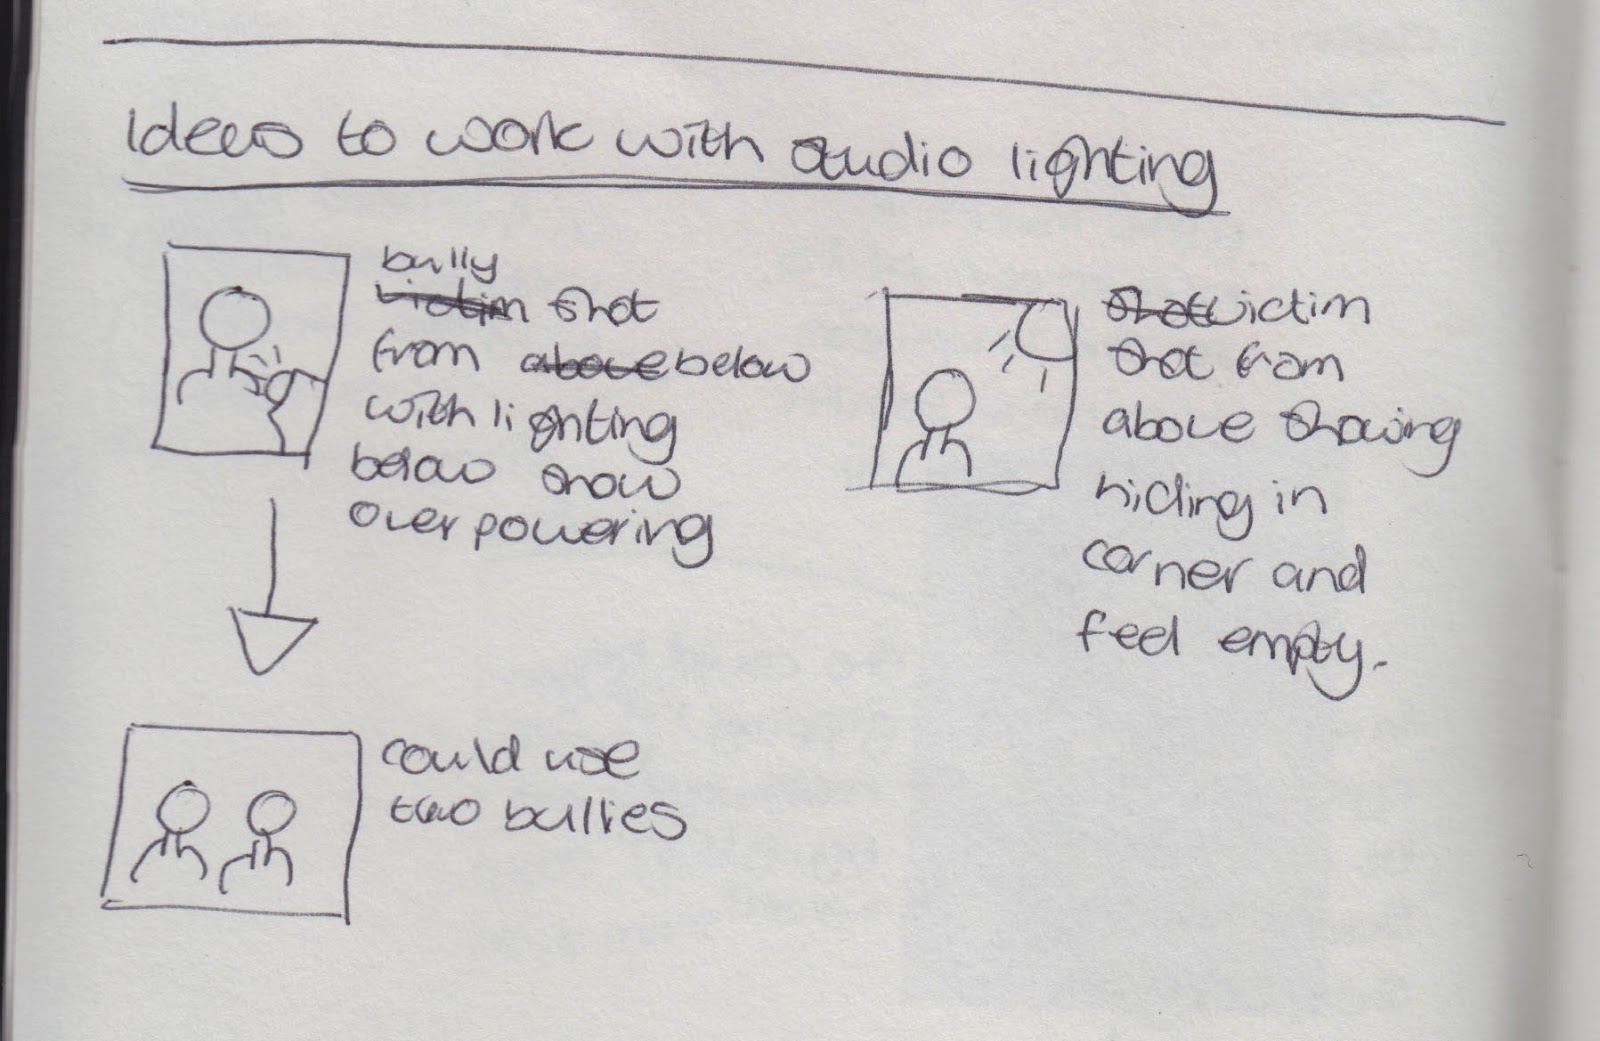 Ideas to work with studio lighting
bully
victim shot
from above below
with lighting
below show
overpowering
shot victim
shot from
above showing
hiding in
corner and
feel empty.
could use
two bullies